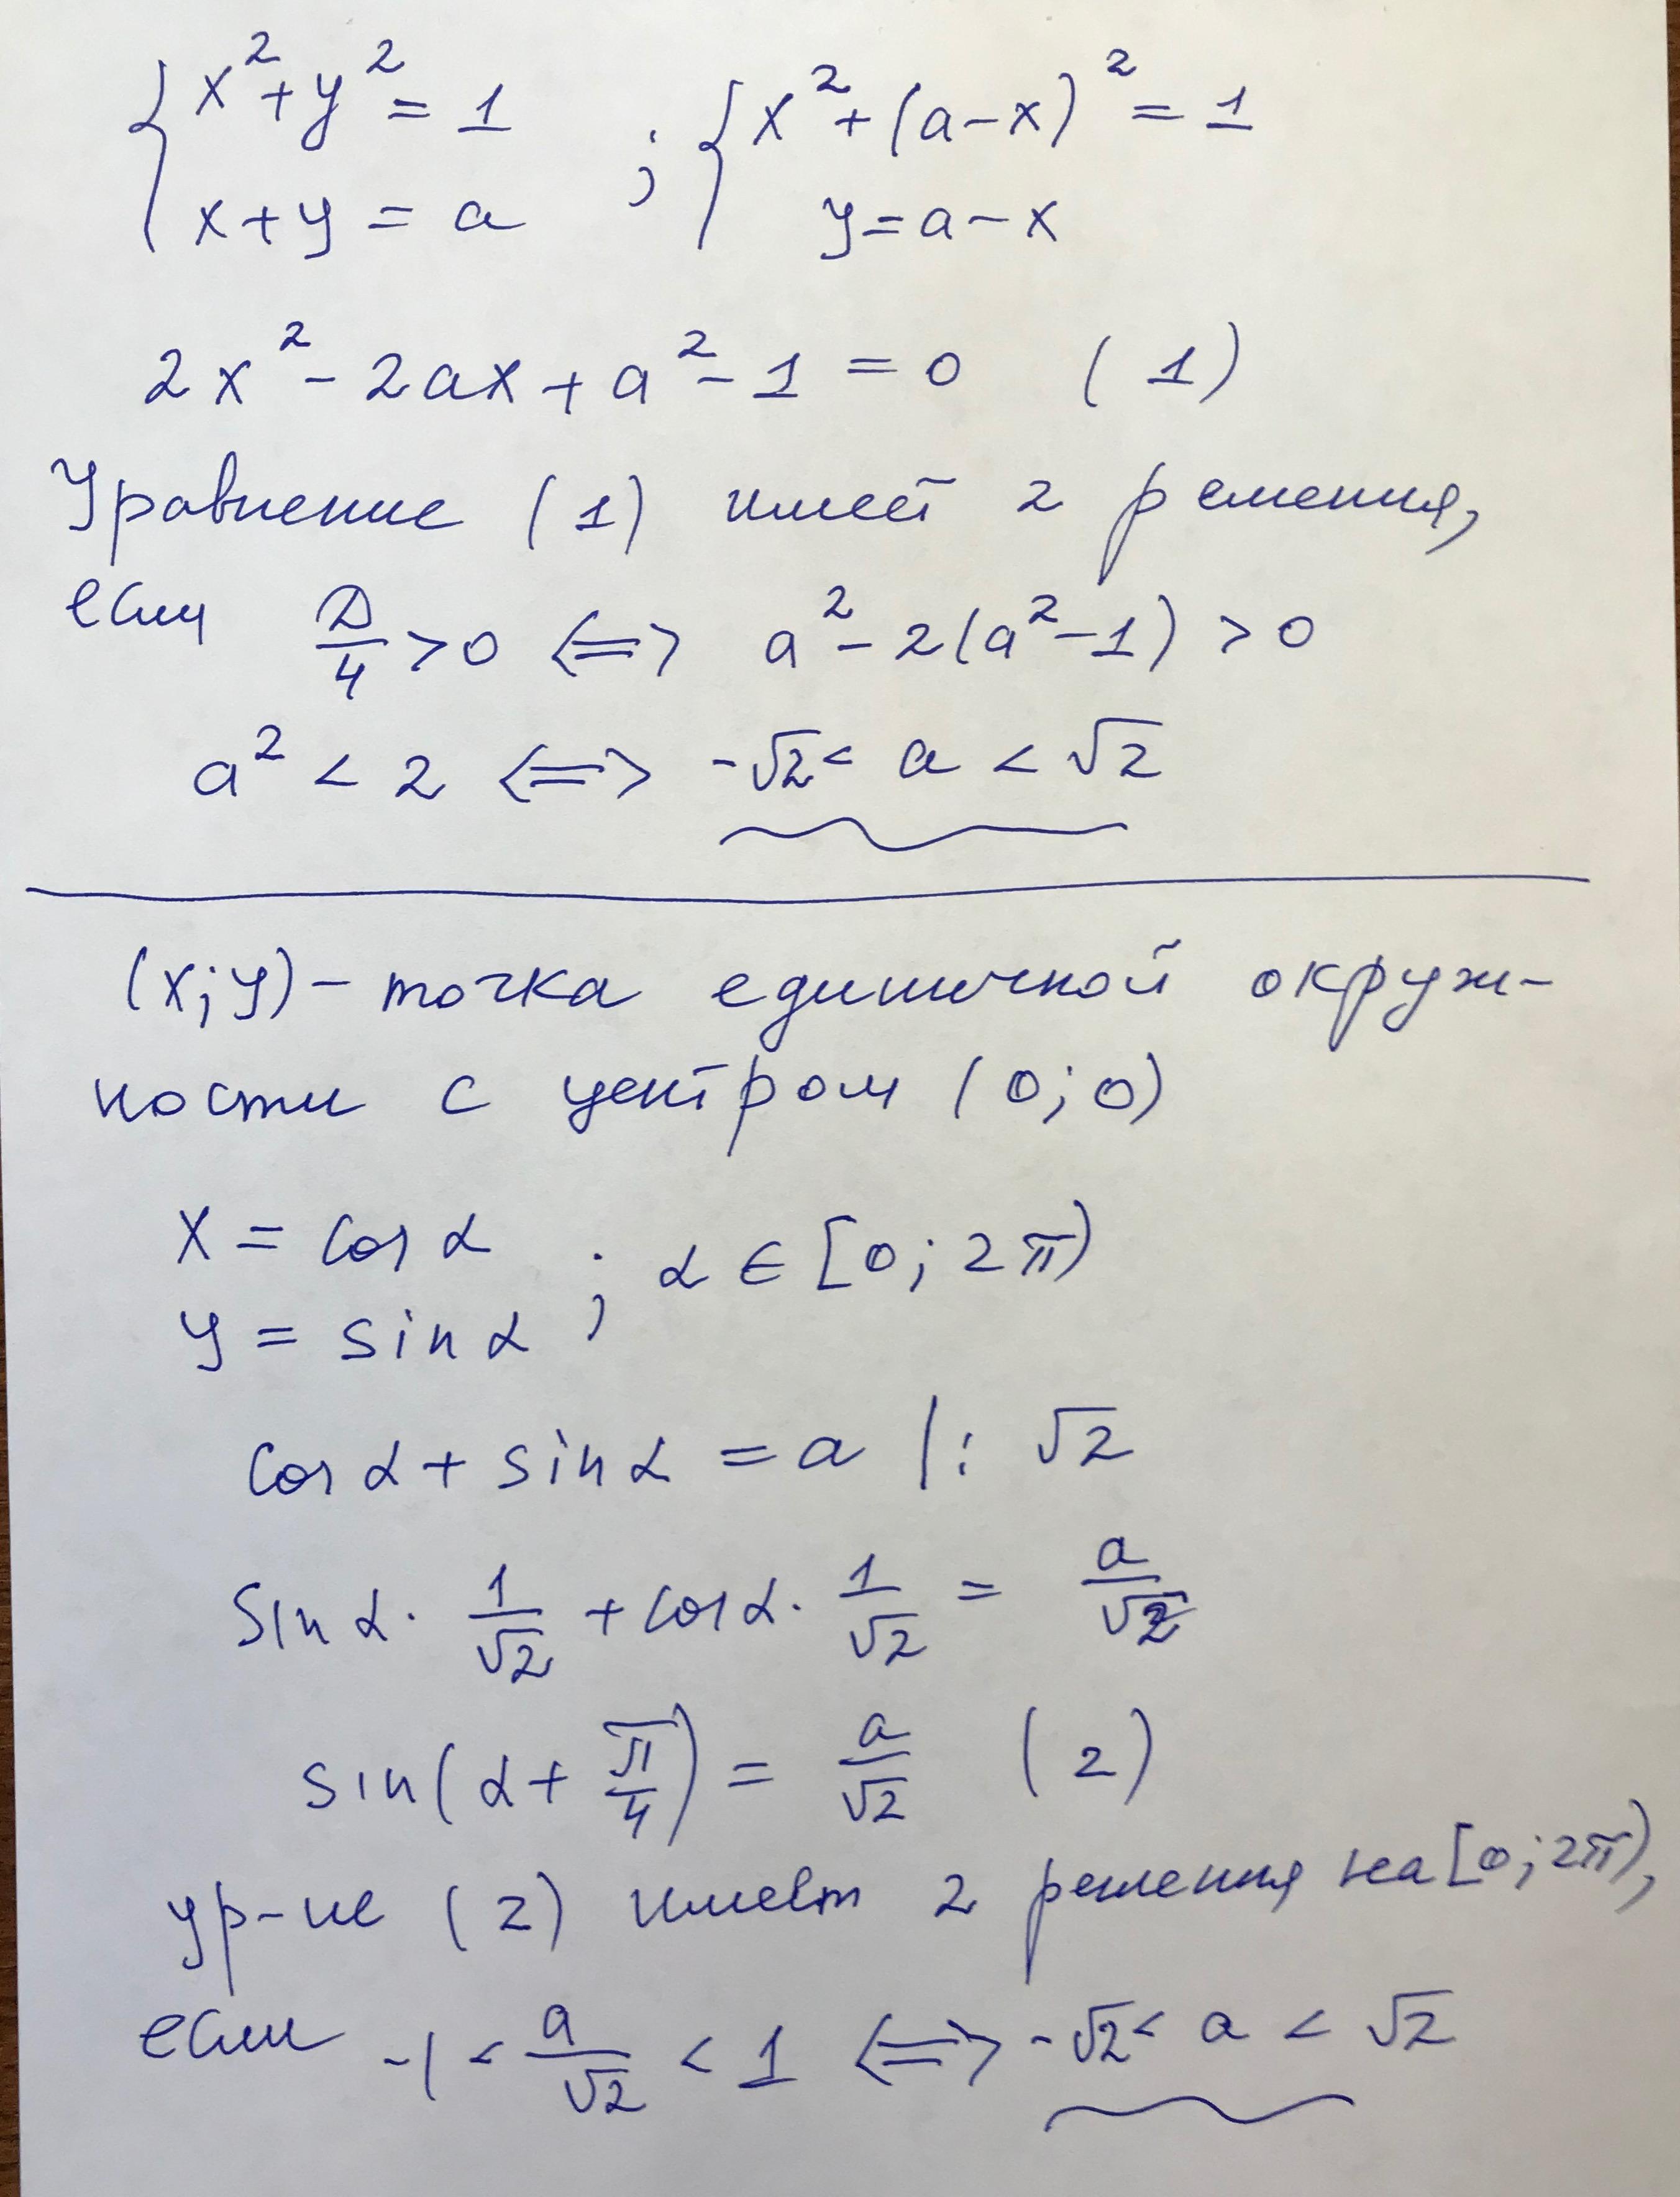 { x² + y² = 1 ; { x² + (a − x)² = 1
{ x + y = a { y = a − x
2x² − 2ax + a² − 1 = 0 (1)
Уравнение (1) имеет 2 решения,
если D/4 > 0 <=> a² − 2(a² − 1) > 0
a² < 2 <=> −√2 < a < √2
(x; y) − точка единичной окруж-
ности с центром (0; 0)
x = cos α ; α ∈ [0; 2π)
y = sin α
cos α + sin α = a |: √2
sin α · 1/√2 + cos α · 1/√2 = a/√2
sin(α + π/4) = a/√2 (2)
ур-ие (2) имеет 2 решения на [0; 2π),
если −1 < a/√2 < 1 <=> −√2 < a < √2